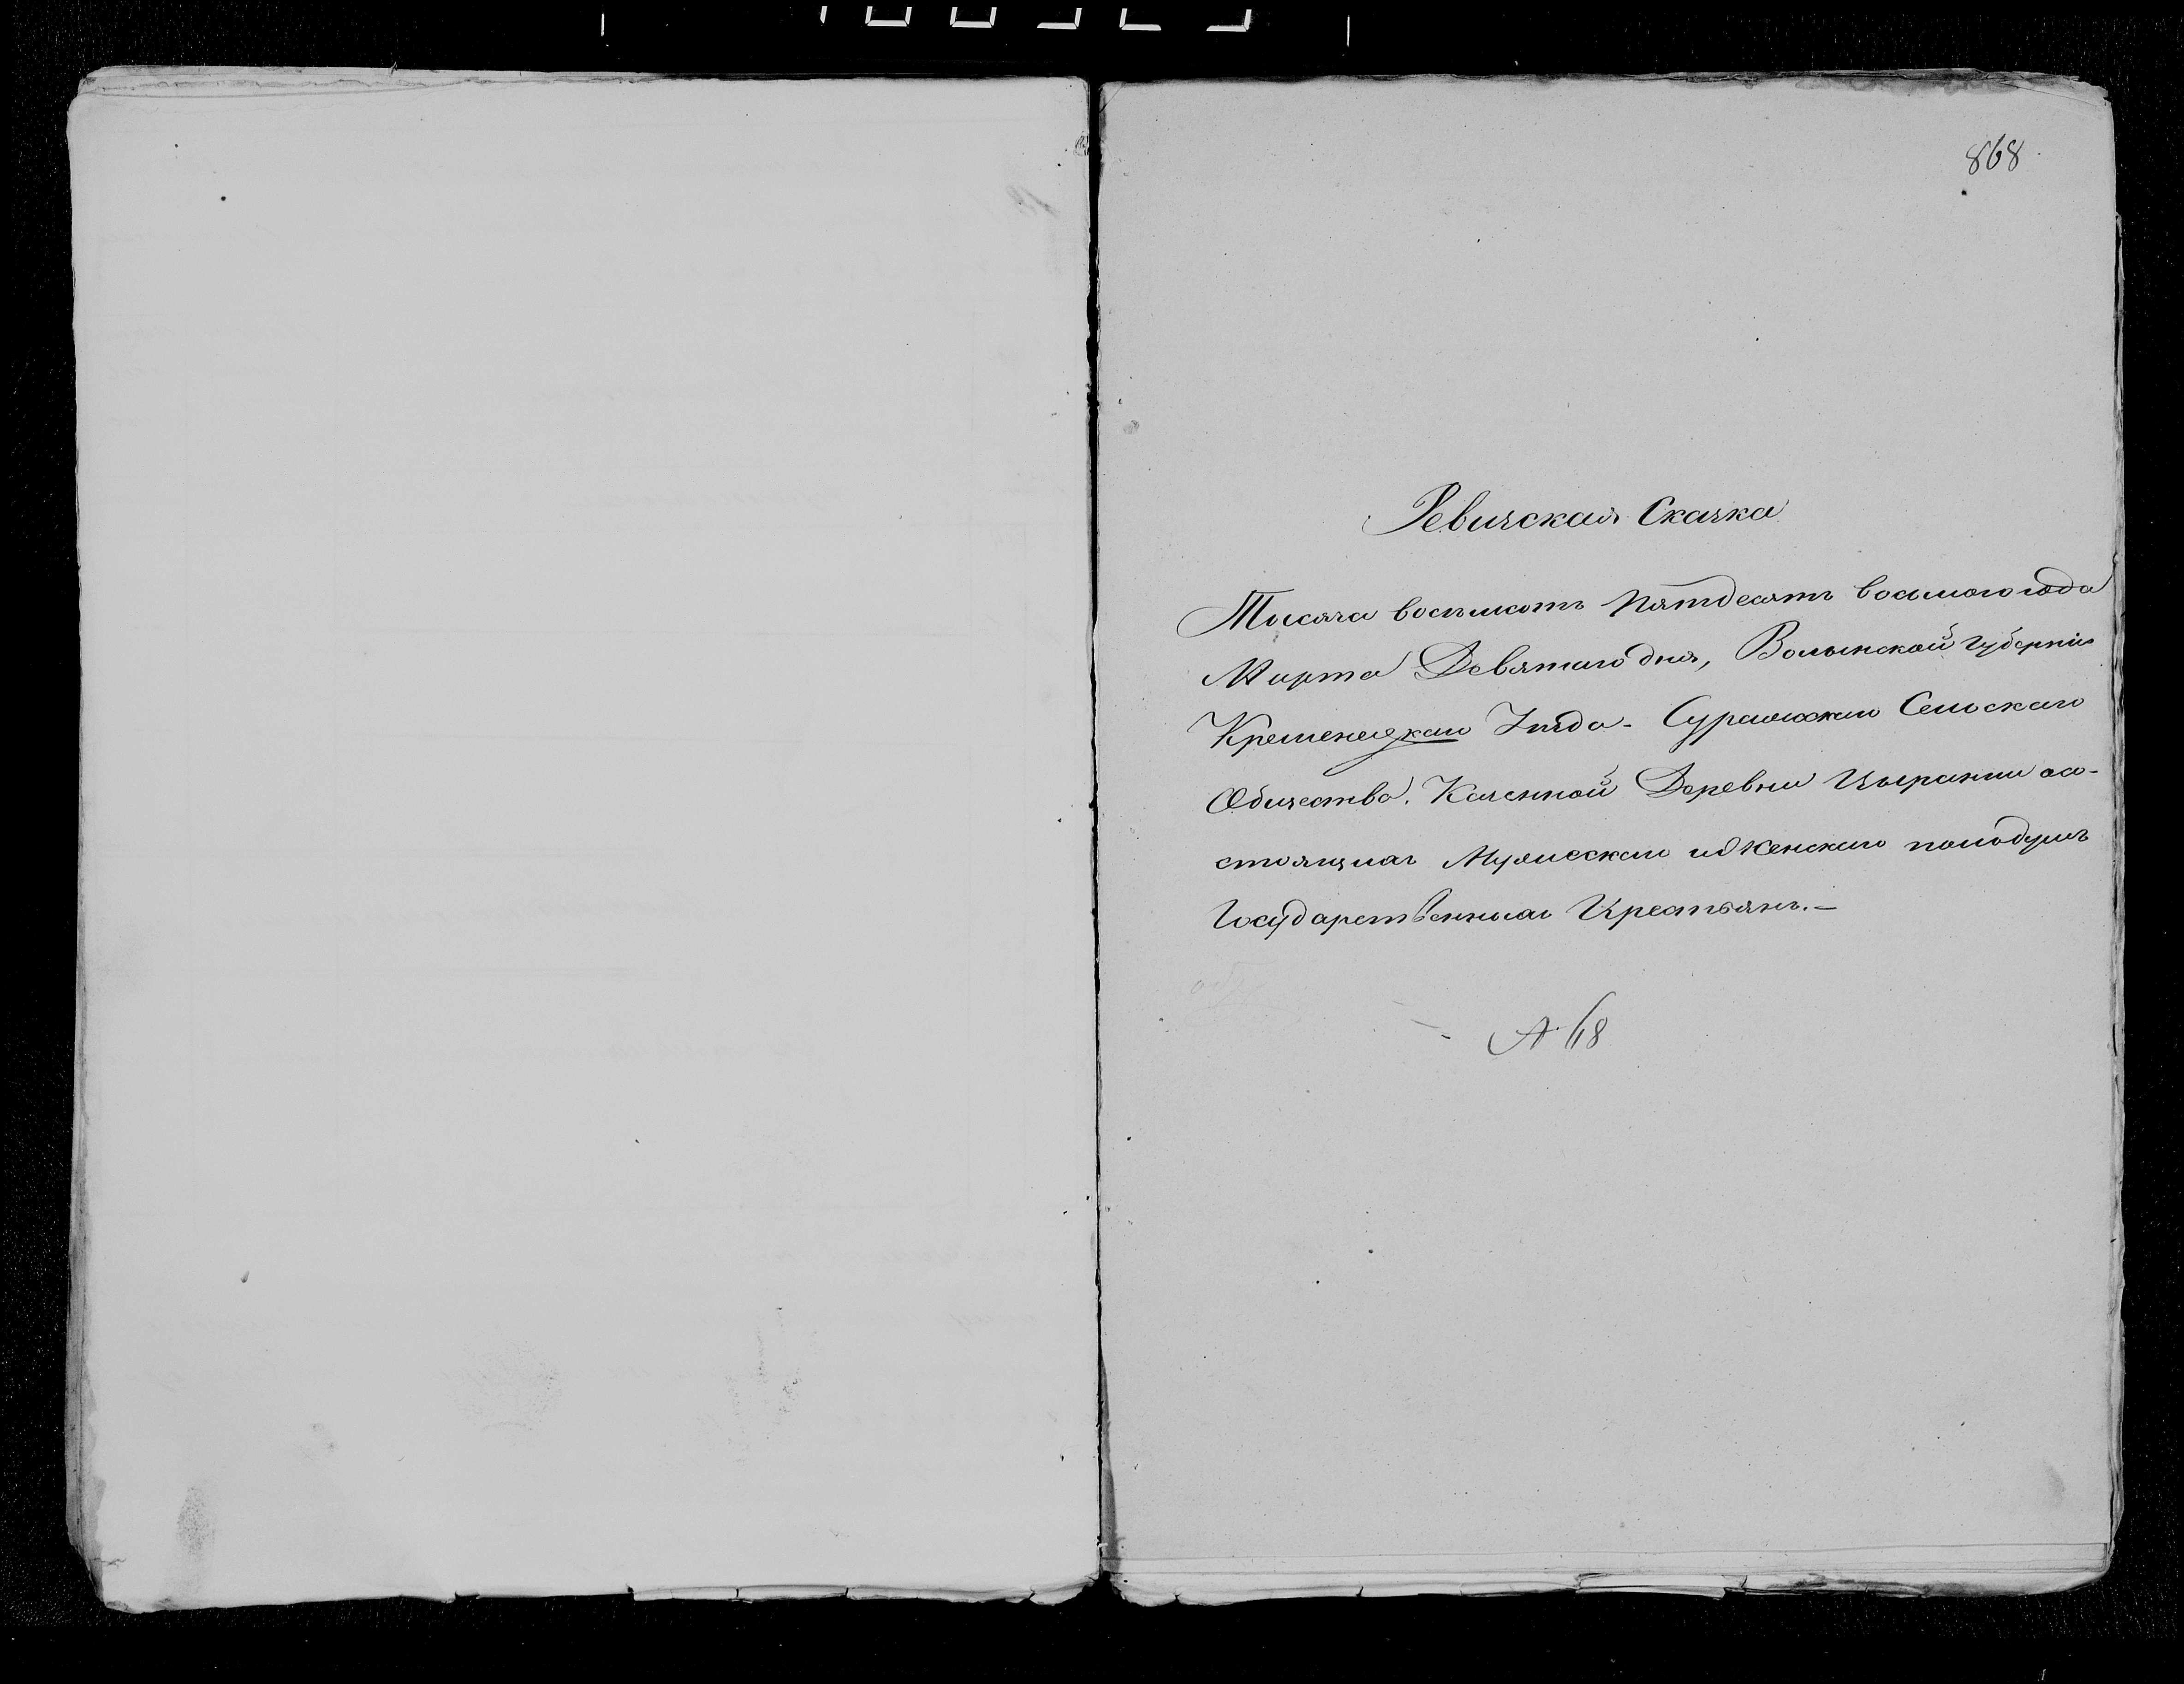 868
Ревизская Сказка
Тысяча восемьсотъ Пятдесятъ восьмого года
Марта Девятаго дня, Волынской Губерніи
Кременецкаго Уѣзда - Суражскаго Сельскаго
Общества. Казенной Деревни Цыранки со-
стоящихъ Мужескаго и Женскаго пола душъ
Государственныхъ Крестьянъ. -